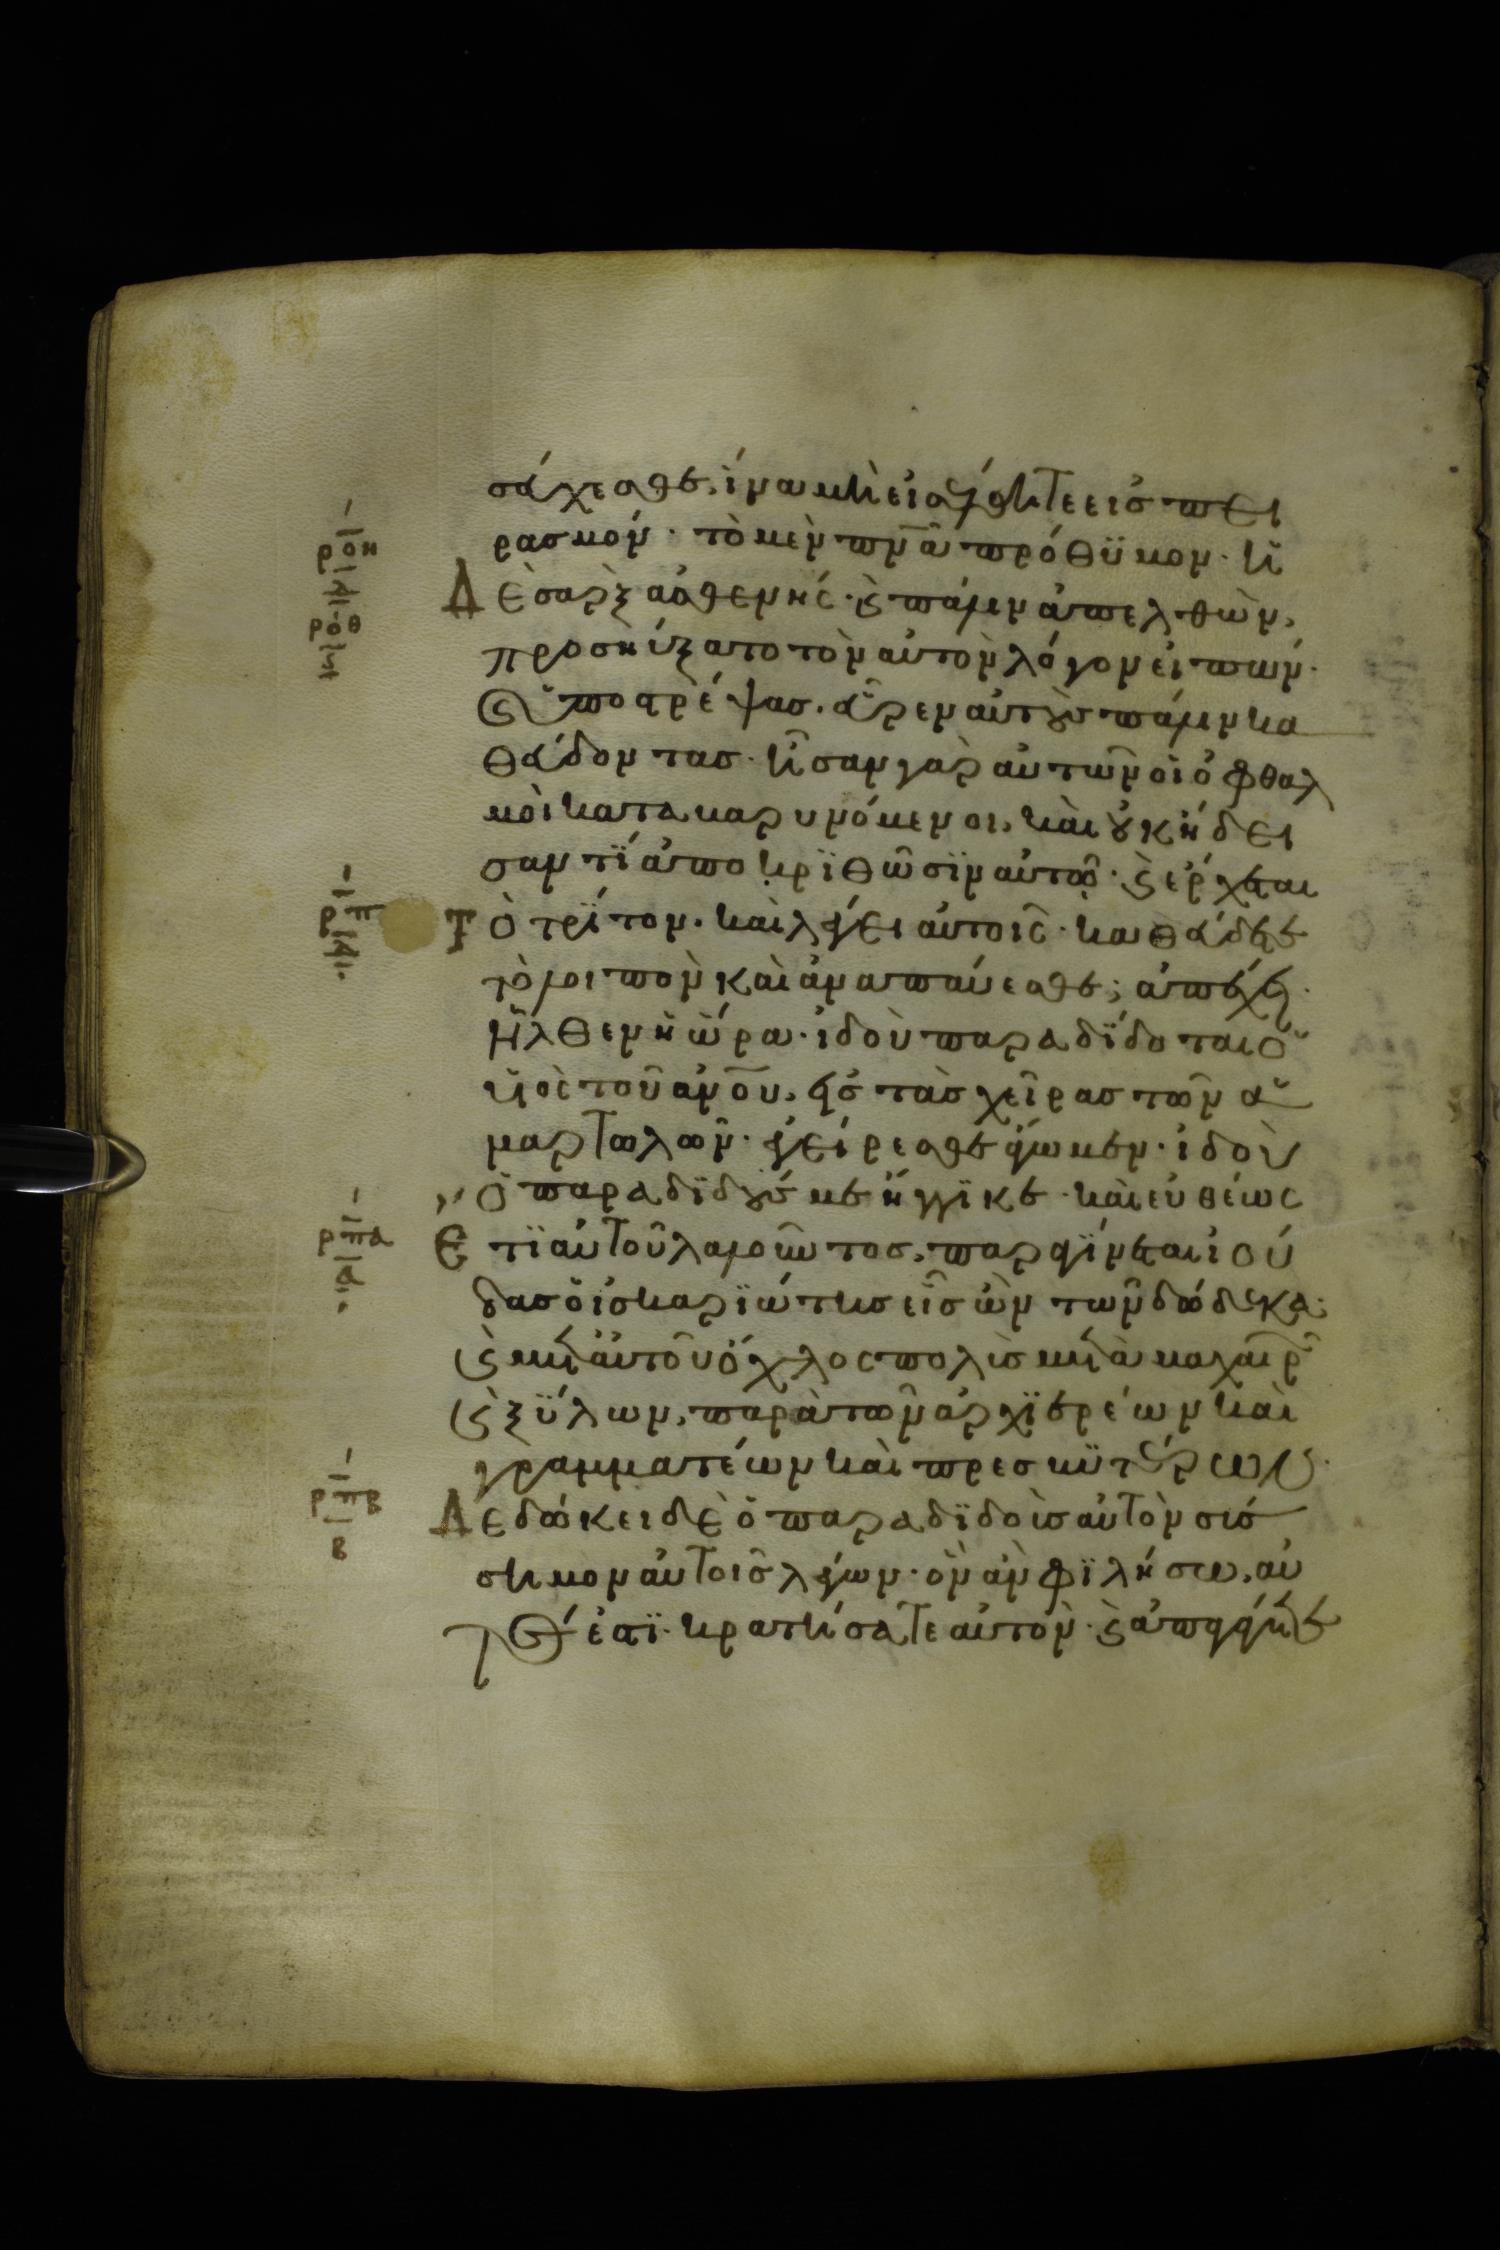 σεύχεσθε, ἵνα μὴ εἰσέλθητε εἰς πει
ρασμόν· τὸ μὲν πν̅α πρόθϋμον· ἡ
ροη
Δὲ σὰρξ ἀσθενής· ϗ πάλιν ἀπελθὼν,
ροθ
προσηύξατο τὸν αὐτὸν λόγον εἰπών·
ϗ ὑποστρέψας, εὗρεν αὐτοὺς πάλιν κα
θεύδοντας· ἦσαν γὰρ αὐτῶν οἱ ὀφθαλ
μοὶ καταβαρυνόμενοι, καὶ οὐκ ἤδει
σαν τί ἀποκριθῶσϊν αὐτῶ· ϗ ἔρχεται
ρπ
Τὸ τρίτον· καὶ λέγει αὐτοῖς· καθεύδετε
τὸ λοιπὸν καὶ ἀναπαύεσθε; ἀπέχει·
ἦλθεν ἡ ὥρα· ἰδοὺ παραδίδοται ὁ
υἱὸς τοῦ ἀνο̅υ, εἰς τὰς χεῖρας τῶν ἁ
μαρτωλῶν· ἐγείρεσθε ἄγωμεν· ἰδοὺ
ὁ παραδιδούς με ἤγγϊκε· καὶ εὐθέως
ρπα
α
Ἔτϊ αὐτοῦ λαλοῦντος, παραγίνεται ἰού
δας ὁ ἰσκαριώτης εἷς ὢν τῶν δώδεκα·
ϗ μετ' αὐτοῦ ὄχλος πολὺς μετὰ μαχαιρῶν
ϗ ξύλων, παρὰ τῶν ἀρχϊερέων καὶ
γραμματέων καὶ πρεσβϋτέρων·
ρπβ
β
Δεδώκει δὲ ὁ παραδιδοὺς αὐτὸν σύσ
σημον αὐτοῖς λέγων· ὃν ἂν φϊλήσω, αὐ
τός ἐστϊ· κρατήσατε αὐτὸν· ϗ ἀπαγάγετε